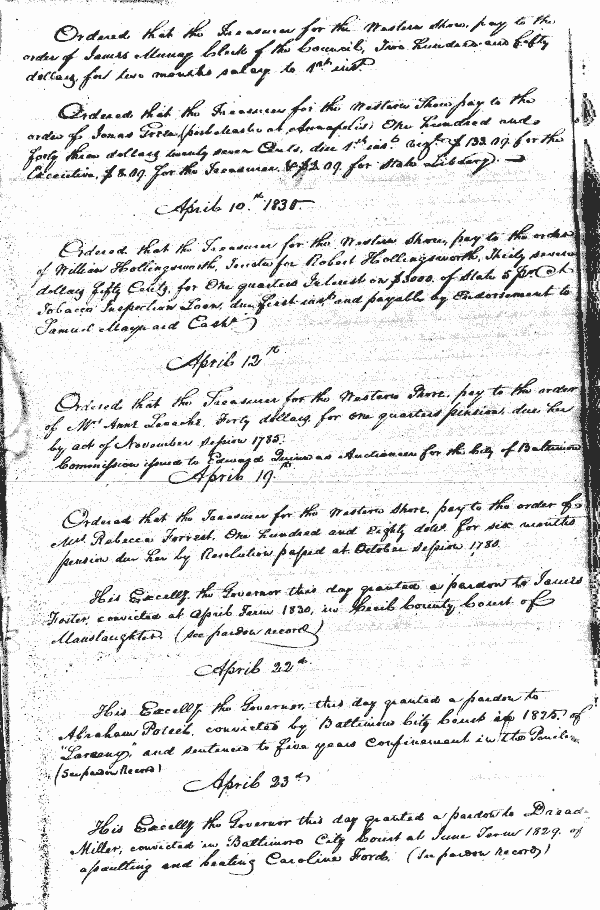 Ordered that the Treasurer for the Western Shore, pay to the
order of James Murray Clerk of the Council, Two hundred and fifty
dollars, for two months salary to 1st inst.
Ordered that the Treasurer for the Western Shore pay to the
order of Jonas Green, postmaster at Annapolis, One hundred and
forty three dollars twenty seven Cents, due 1st inst. viz. $ 133.09 for the
Executive, $ 8.09 for the Treasurer, & $2.09 for State Library
April 10.th 1830.
Ordered that the Treasurer for the Western Shore, pay to the order
of William Hollingsworth, Trustee for Robert Hollingsworth, Thirty seven
dollars fifty Cents, for One quarters Interest on $3000. of State 5 pr Ct
Tobacco Inspection Loan, due first inst. and payable by Endorsement to
Samuel Maynard Cashr.
April 12th
Ordered that the Treasurer for the Western Shore, pay to the order
of Mrs Anne, Forty dollars, for one quarters pension, due her
by act of November session 1785.
Commission issued to Edward Quinn as Auctioneer for the City of Baltimore
April 19.th
Ordered that the Treasurer for the Western Shore, pay to the order of
Mrs. Rebecca Forrest, One hundred and Eighty dols. for six months
pension due her by Resolution passed at October session 1780.
His Excelly. the Governor this day granted a pardon to James
Foster, convicted at April Term 1830, in Cecil County Court of
Manslaughter (see pardon record)
April 22d
His Excelly. the Governor, this day granted a pardon to
Abraham, convicted by Baltimore City Court in 1825, of
"Larceny," and sentenced to five years confinement in the
(See pardon Record)
April 23d
His Excelly the Governor this day granted a pardon to
Miller, convicted in Baltimore City Court at June Term 1829. of
assaulting and beating Caroline Ford. (See pardon record)